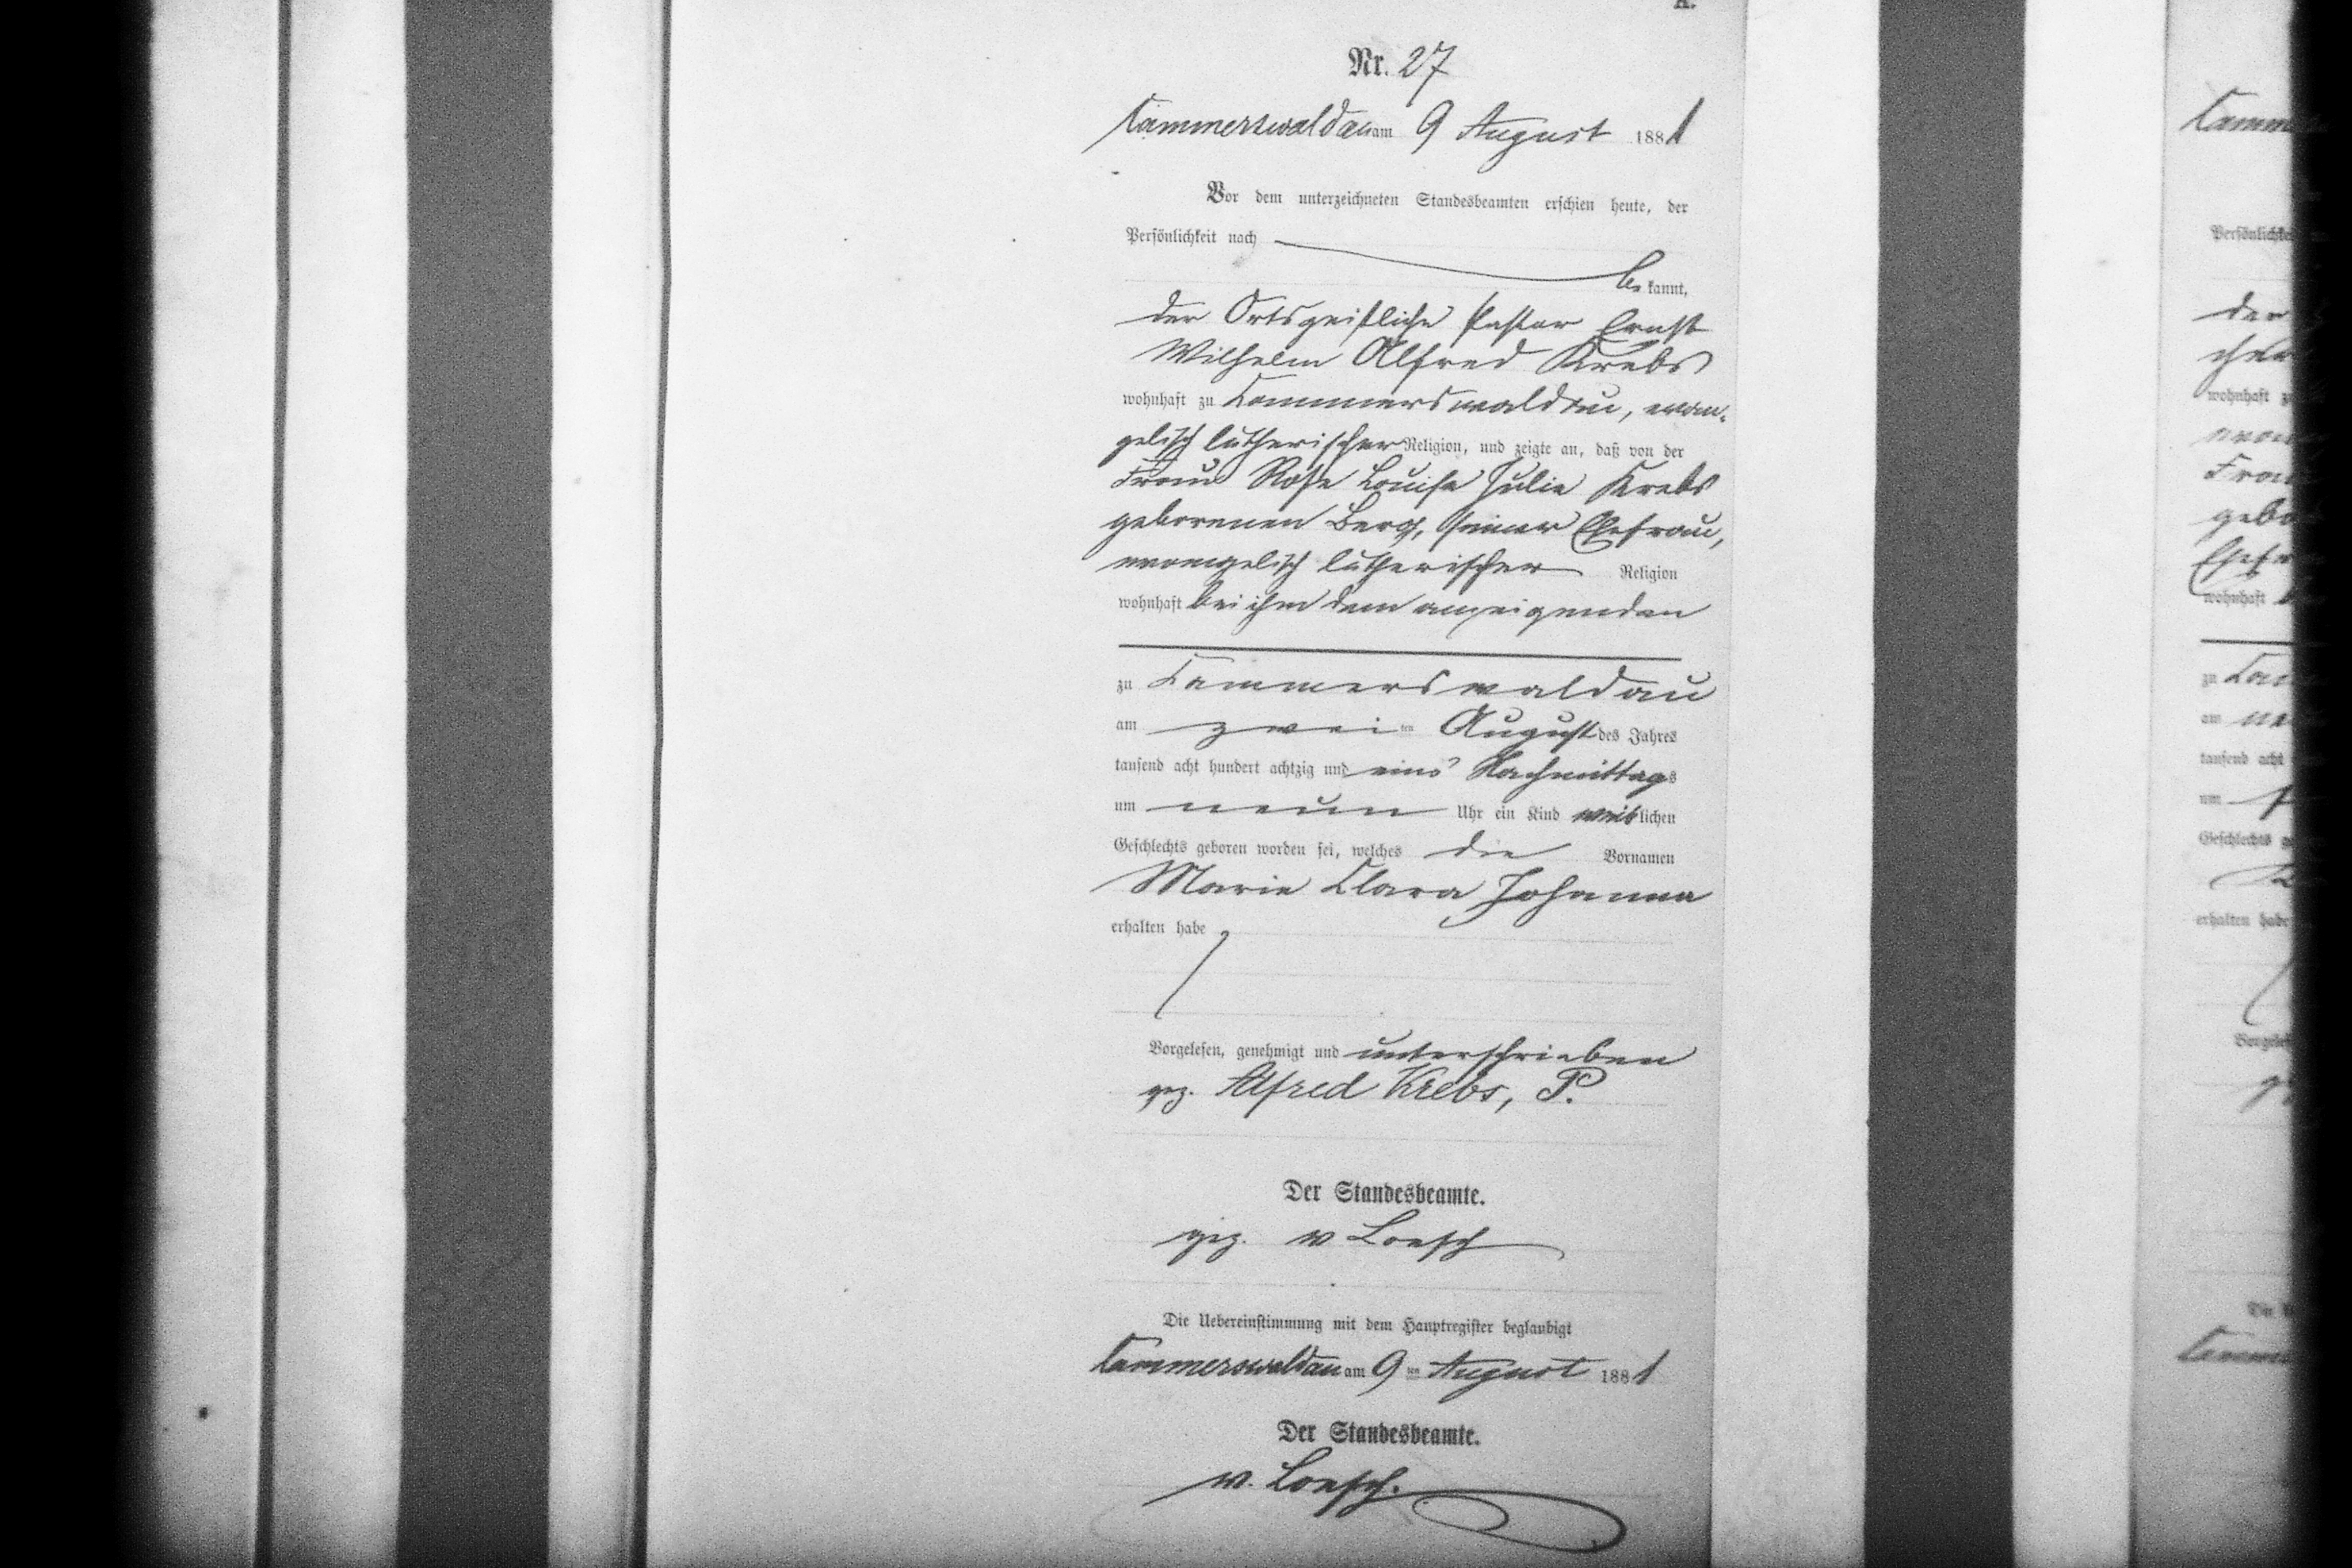 A.
Nr. 27
Cammerswaldau am 9 August 1881
Vor dem unterzeichneten Standesbeamten erschien heute, der
Persönlichkeit nach
be kannt,
der Ortsgeistliche Pastor Ernst
Wilhelm Alfred Krebs
wohnhaft zu Cammerswaldau, evan-
gelisch lutherischer Religion, und zeigte an, daß von der
Frau Rose Louise Julie Krebs
geborenen Berg, seiner Ehefrau,
evangelisch lutherischer Religion
wohnhaft bei ihm dem anzeigenden
zu Cammerswaldau
am zwei ten August des Jahres
tausend acht hundert achtzig und eins Nachmittags
um neun Uhr ein Kind weiblichen
Geschlechts geboren worden sei, welches die Vornamen
Marie Clara Johanna
erhalten habe
Vorgelesen, genehmigt und unterschrieben
gez. Alfred Krebs, P.
Der Standesbeamte.
gez. v Loesch
Die Uebereinstimmung mit dem Hauptregister beglaubigt
Cammerswaldau am 9 ten August 1881
Der Standesbeamte.
v. Loesch.